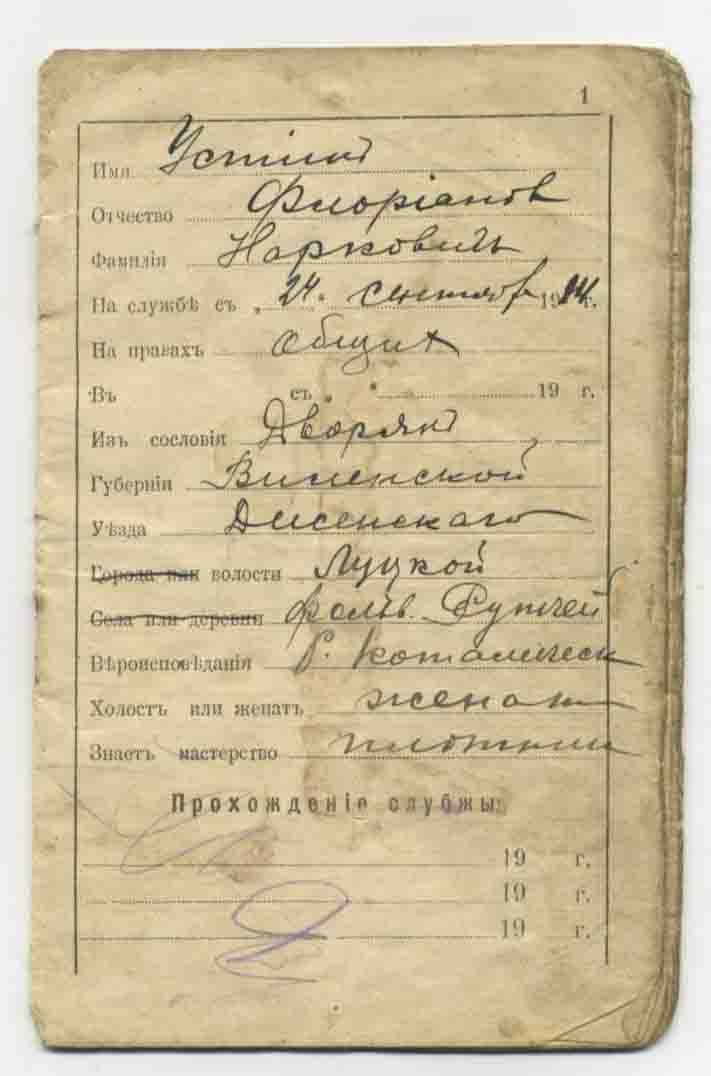 1
Имя Устинъ
Отчество Флоріановъ
Фамилія Нарковичъ
На службѣ съ „ 24 „ сентября 1914 г.
На правахъ общихъ
Въ съ „ " 19 г.
Изъ сословія Дворянъ
Губерніи Виленской
Уѣзда Дисенскаго
Города или волости Луцкой
Села или деревни фольв.
Вѣроисповѣданія Р. Католическ
Холостъ или женатъ женат
Знаетъ мастерство плотник
Прохожденіе слубжы:
19 г.
19 г.
19 г.